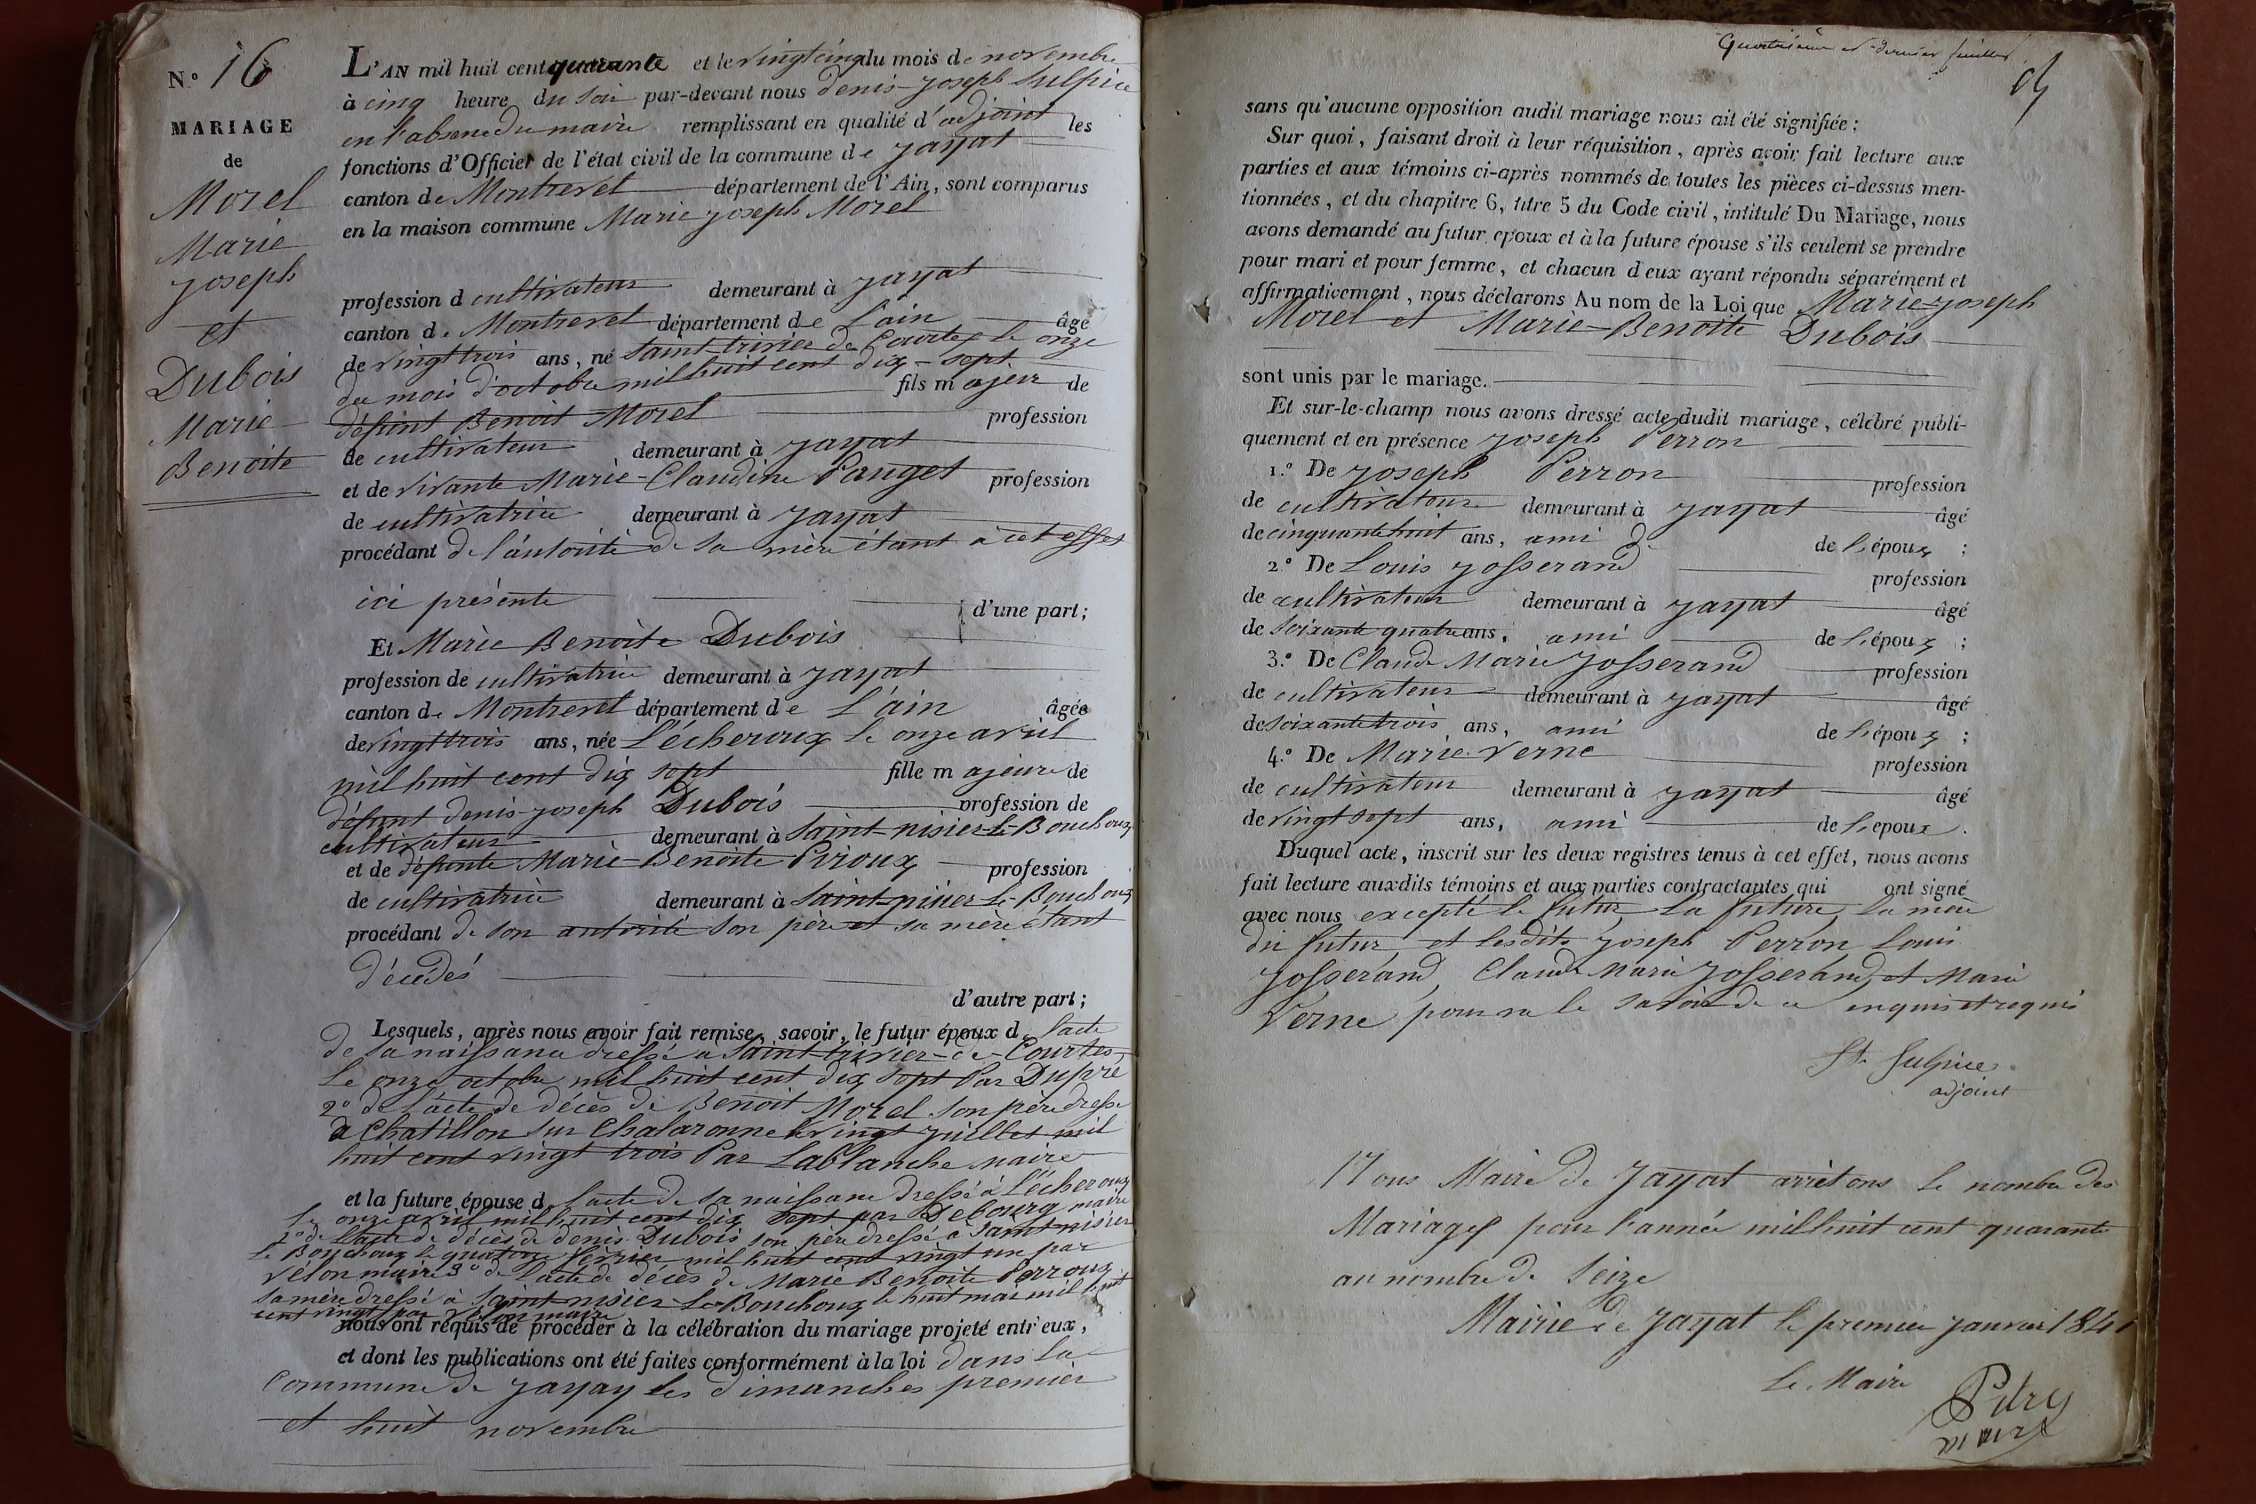 N.º 16
MARIAGE
de
Morel
Marie
joseph
et
Dubois
Marie
Benoite
L'AN mil huit cent quarante et le vingt cinq du mois de novembre
à cinq heure du soir par-devant nous denis-joseph Sulpice
en l'absence du maire remplissant en qualité d'adjoint les
fonctions d'Officier de l'état civil de la commune de jayat
canton de Montrevel département de l'Ain, sont comparus
en la maison commune Marie joseph Morel
profession d cultivateur demeurant à jayat
canton de Montrevel département de l'ain âgé
de vingt trois ans, né Saint-trivier de Courtes le onze
du mois d'octobre mil huit cent dix-sept fils majeur de
défunt Benoit Morel profession
de cultivateur demeurant à jayat
et de vivante Marie-Claudine Pauget profession
de cultivatrice demeurant à jayat
procédant de l'autorité de sa mère étant à cet effet
ici présente d'une part;
Et Marie Benoite Dubois
profession de cultivatrice demeurant à jayat
canton de Montrevel département de L'ain âgée
de vingt trois ans, née L'écheroux le onze avril
mil huit cent dix sept fille majeure de
défunt denis-joseph Dubois profession de
cultivateur demeurant à Saint-nisier-le-Bouchoux
et de défunte Marie-Benoite Piroux profession
de cultivatrice demeurant à Saint-nisier-le-Bouchoux
procédant de son autorité son père et sa mère étant
décédés
d'autre part;
Lesquels, après nous avoir fait remise, savoir, le futur époux de l'acte
de sa naissance dressé a Saint-trivier-de-Courtes
le onze octobre mil huit cent dix sept Par Dupré
2º de l'acte de décès de Benoit Morel son père dressé
à Chatillon sur Chalaronne le vingt juillet mil
huit cent vingt trois Par Lablanche maire
et la future épouse de l'acte de sa naissance dressé à l'écheroux
le onze avril mil huit cent dix sept par Debourg maire
2º de l'acte de décès de denis Dubois son père dressé à Saint nisier
le Bouchoux le quatorze février mil huit cent vingt un par
Velon maire 3º de l'acte de décès de Marie Benoite Perroux
sa mère dressé à Saint-nisier-le-Bouchoux le huit mai mil huit
cent vingt par Velon maire
nous ont requis de procéder à la célébration du mariage projeté entr'eux,
et dont les publications ont été faites conformément à la loi dans la
commune de jayay les dimanches premier
et huit novembre
Quatrième et dernier feuillet
sans qu'aucune opposition audit mariage nous ait été signifiée;
Sur quoi, faisant droit à leur réquisition, après avoir fait lecture aux
parties et aux témoins ci-après nommés de toutes les pièces ci-dessus men-
tionnées, et du chapitre 6, titre 5 du Code civil, intitulé Du Mariage, nous
avons demandé au futur epoux et à la future épouse s'ils veulent se prendre
pour mari et pour femme, et chacun d'eux ayant répondu séparément et
affirmativement, nous déclarons Au nom de la Loi que Marie-joseph
Morel et Marie-Benoite Dubois
sont unis par le mariage.
Et sur-le-champ nous avons dressé acte dudit mariage, célébré publi-
quement et en présence joseph Perron
1.º De joseph Perron profession
de cultivateur demeurant à jayat âgé
de cinquante huit ans, ami de l'époux;
2.º De Louis josserand profession
de cultivateur demeurant à jayat âgé
de soixante quatre ans, ami de l'époux;
3.º De Claude Marie josserand profession
de cultivateur demeurant à jayat âgé
de soixante trois ans, ami de l'époux;
4.º De Marie Verne profession
de cultivateur demeurant à jayat âgé
de vingt sept ans, ami de l'epoux.
Duquel acte, inscrit sur les deux registres tenus à cet effet, nous avons
fait lecture auxdits témoins et aux parties contractantes qui ont signé
avec nous excepté le futur la future, la mère
du futur et lesdits joseph Perron Louis
josserand, Claude Marie josserand, et Marie
Verne pour ne le savoir de ce enquis et requis
St. Sulpice
adjoint
Nous Maire de jayat arrêtons le nombre des
Mariages pour l'année mil huit cent quarante
au nombre de Seize
Mairie de jayat le premier janvier 1841
Le Maire
Pitry
maire